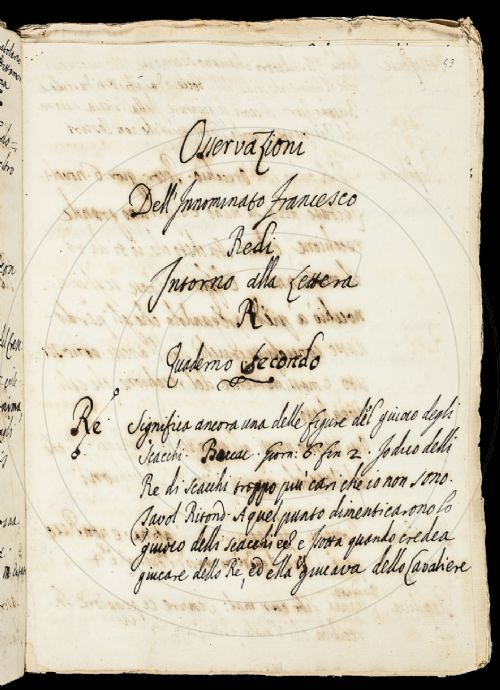 53
Osservazioni
Dell'Innominato Francesco
Redi
Intorno alla Lettera
R
Quaderno Secondo
Re Significa ancora una delle figure del giuoco degli
Scacchi. Bocac. Giorn. 6. fin 2. Io dico delli
Re di scacchi troppo più cari che io non sono.
Tavol Ritond. A quel punto dimenticarono lo
giuoco delli scacchi ed e Isotta quando credea
giucare dello Re, ed ella giucava dello Cavaliere